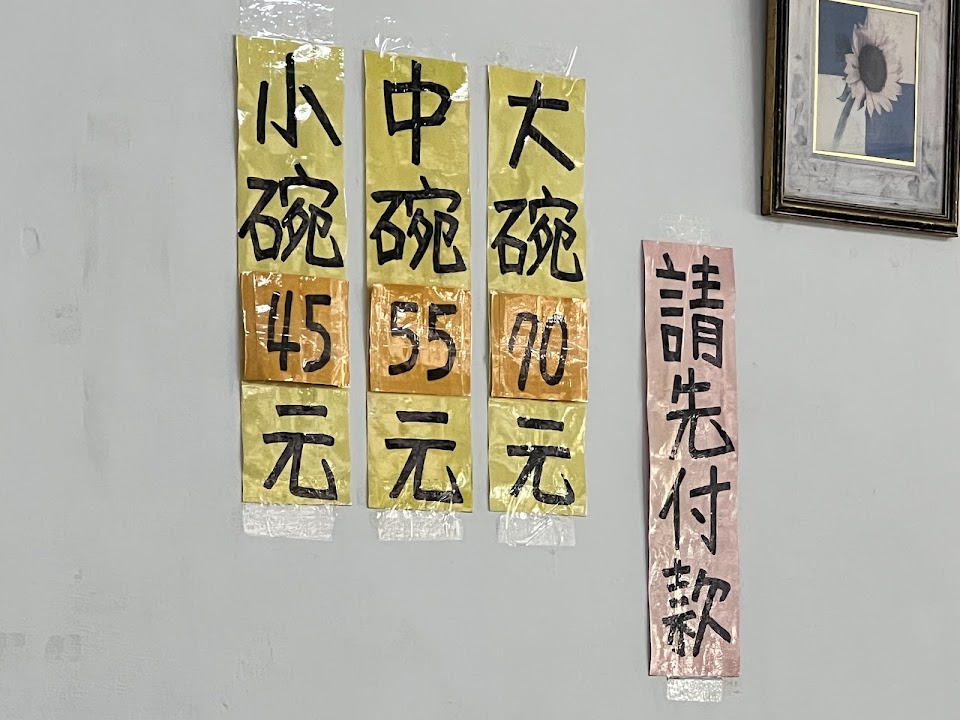 小碗45元
中碗55元
大碗70元
請先付款